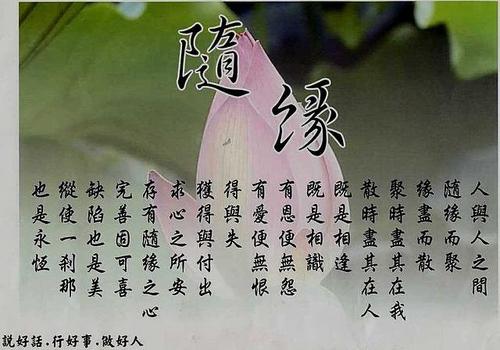 隨緣
人與人之間
隨緣而聚
緣盡而散
聚時盡其在我
散時盡其在人
既是相逢
既是相識
有恩便無怨
有愛便無恨
得與失
獲得與付出
求心之所安
存有隨緣之心
完善固可喜
缺陷也是美
縱使一剎那
也是永恆
說好話.行好事.做好人